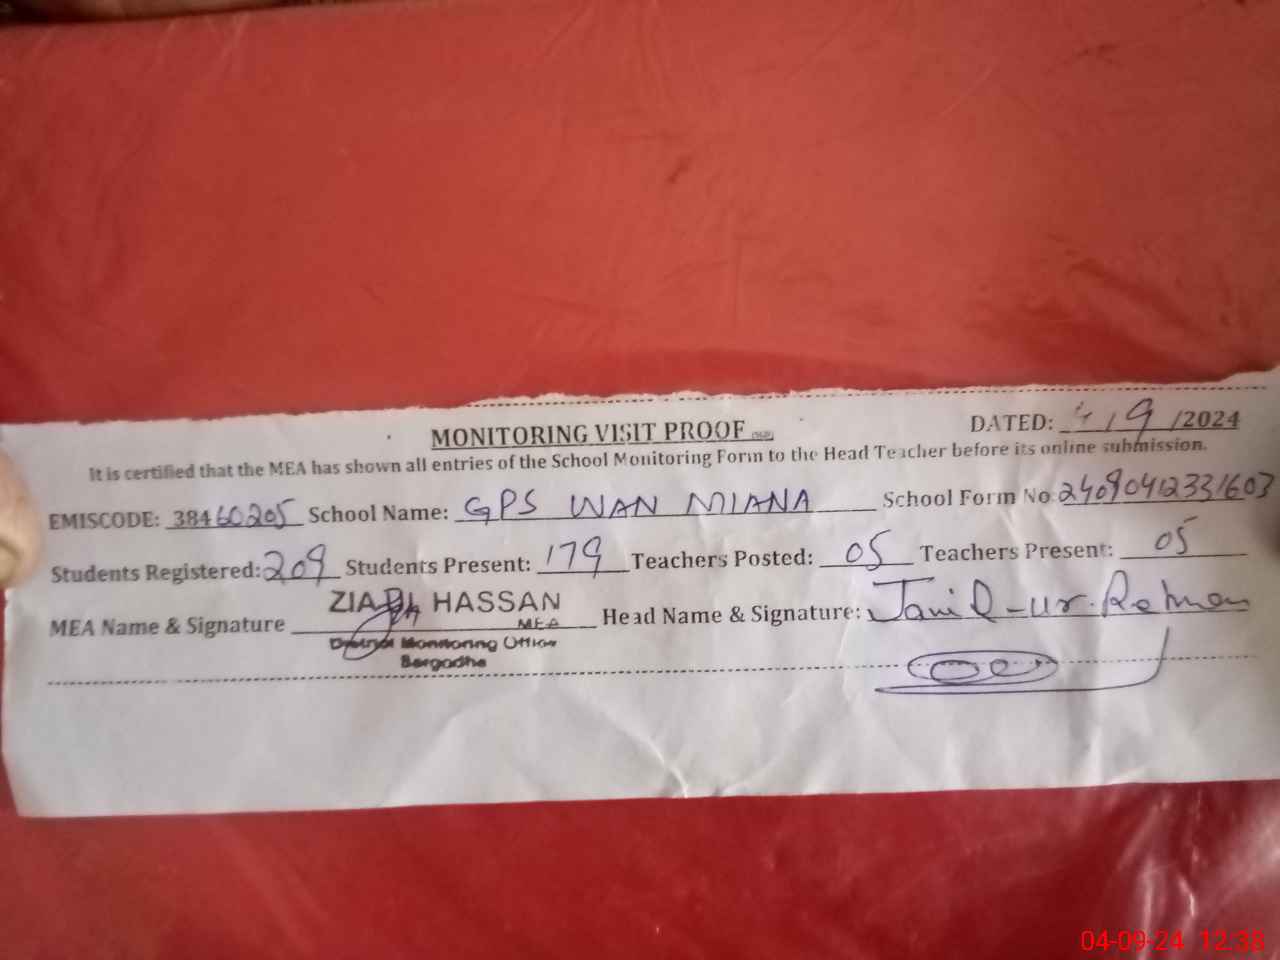 MONITORING VISIT PROOF
DATED: 4/9/2024
It is certified that the MEA has shown all entries of the School Monitoring Form to the Head Teacher before its online submission.
EMISCODE: 38460205 School Name: GPS WAN MIANA School Form No: 24090412331603
Students Registered: 209 Students Present: 179 Teachers Posted: 05 Teachers Present: 05
MEA Name & Signature HASSAN Head Name & Signature: Jamil-ur-Rehman
MEA
District Monitoring Office
Sargodha
04-09-24 12:38